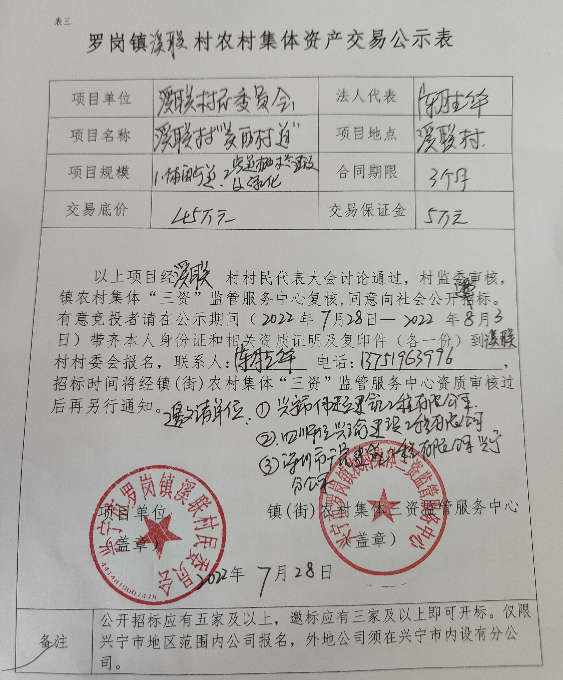 表三
罗岗镇溪联村农村集体资产交易公示表
项目单位 溪联村民委员会 法人代表 陈胜华
项目名称 溪联村 村道" 项目地点 溪联村
项目规模 合同期限 3个月
交易底价 45万元 交易保证金 5万元
以上项目经溪联 村村民代表大会讨论通过，村监委审核，
镇农村集体“三资”监管服务中心复核，同意向社会公开邀招标。
有意竞投者请在公示期间（2022年7月28日—2022年8月3
日）带齐本人身份证和相关资质证明及复印件（各一份）到溪联
村村委会报名，联系人：陈胜华 电话：13751963996，
招标时间将经镇(街)农村集体“三资”监管服务中心资质审核过
后再另行通知。
邀请单位：① 兴宁市 建筑工程有限公司
② 建设工程有限公司
③ 深圳市 工程有限公司兴宁
分公司
项目单位 镇(街)农村集体三资监管服务中心
（盖章） （盖章）
2022年7月28日
兴宁市罗岗镇溪联村民委员会
兴宁市罗岗镇农村集体三资监管服务中心
备注 公开招标应有五家及以上，邀标应有三家及以上即可开标。仅限
兴宁市地区范围内公司报名，外地公司须在兴宁市内设有分公
司。